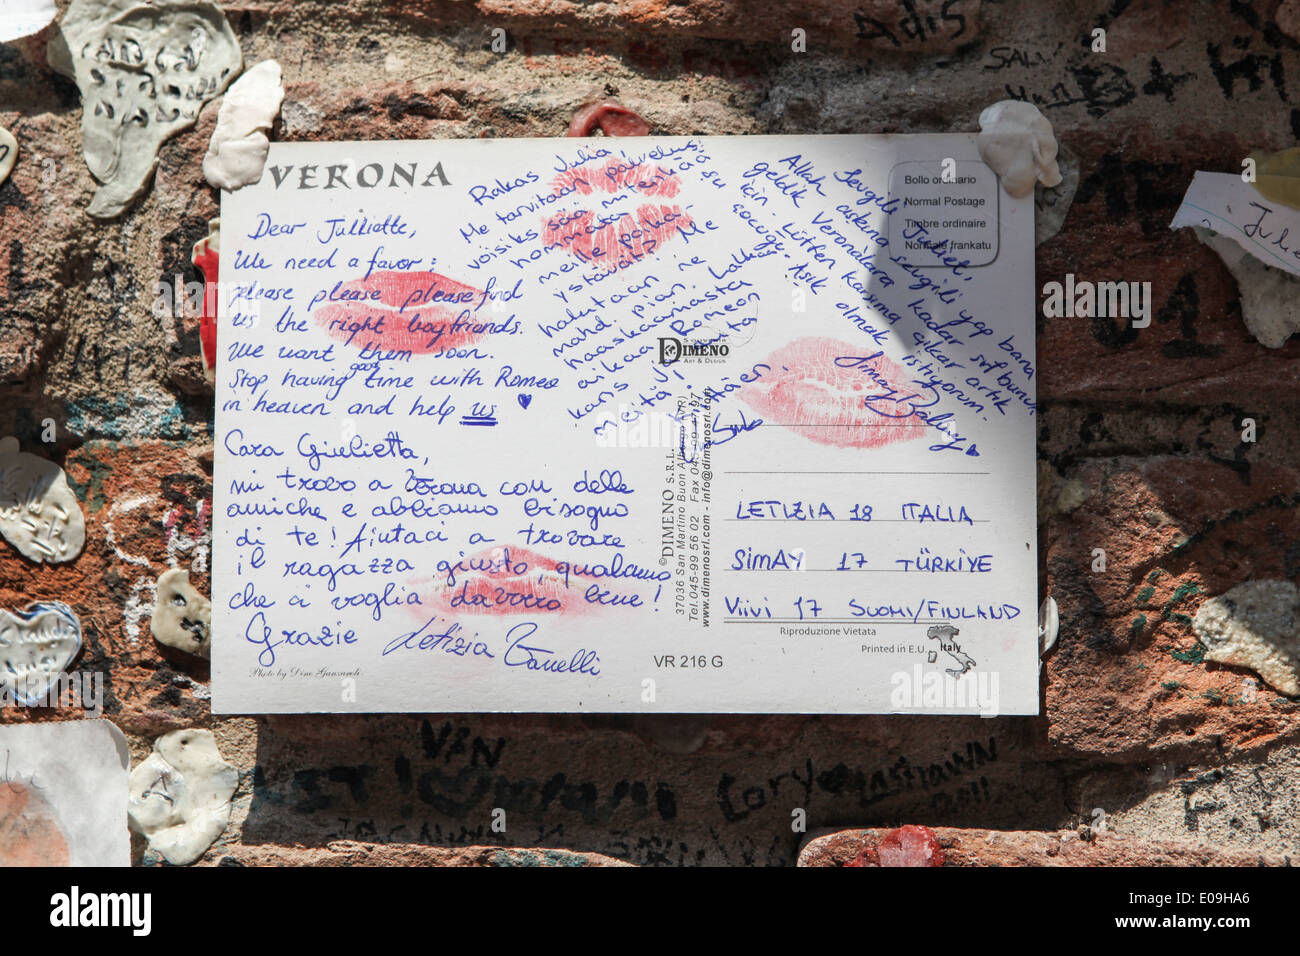 VERONA
Dear Julliette,
We need a favor:
please please please find
us the right boyfriends.
We want them soon.
Stop having good time with Romeo
in heaven and help us
Cara Giulietta,
mi trovo a Verona con delle
amiche e abbiamo bisogno
di te! Aiutaci a trovare
il ragazzo giusto, qualcuno
che ci voglia davvero bene!
Grazie Letizia
Photo by Dino Ganzaroli
Rakas Julia,
Me tarvitaan palvelus:
voisiks sä mitenkään
hommaa
meille poika-
ystävät? Me
halutaan ne
mahd. pian.
haaskaamasta
aikaa Romeon
kans
meitä!
Sevgili Juliet,
Allah aşkına sevgili yap bana
geldik Verona'lara kadar sırf bunun
için. Lütfen karşıma çıkar artık
şu çocuğu. Aşık olmak istiyorum
Simay
Bollo ordinario
Normal Postage
Timbre ordinaire
Normale frankatu
SOUVENIR
DIMENO
ART & DESIGN
©DIMENO S.R.L.
37036 San Martino Buon Albergo (VR)
Tel. 045-99 56 02 Fax 045-99 47 97
www.dimenosrl.com - info@dimenosrl.com
LETIZIA 18 ITALIA
SIMAY 17 TÜRKİYE
VIIVI 17 SUOMI/FINLAND
Riproduzione Vietata
Printed in E.U.
Italy
VR 216 G
Adis
01
VAN
Cory
alamy
Image ID: E09HA6
www.alamy.com